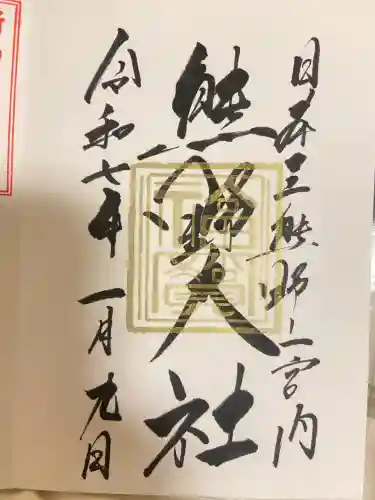 日本三熊野宮内
熊野大社
令和七年一月九日